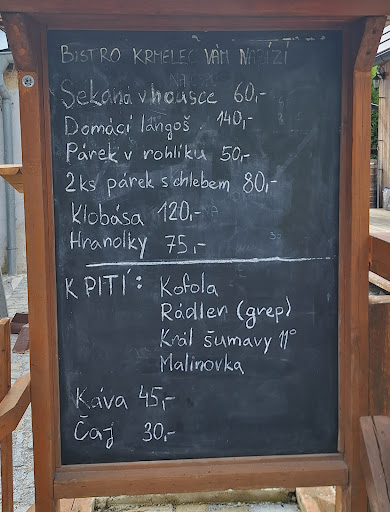 BISTRO KRMELEC VÁM NABÍZÍ
Sekaná v housce 60,-
Domácí langoš 140,-
Párek v rohlíku 50,-
2ks párek s chlebem 80,-
Klobása 120,-
Hranolky 75,-
K PITÍ: Kofola
Rádler (grep)
Král šumavy 11°
Malinovka
Káva 45,-
Čaj 30,-